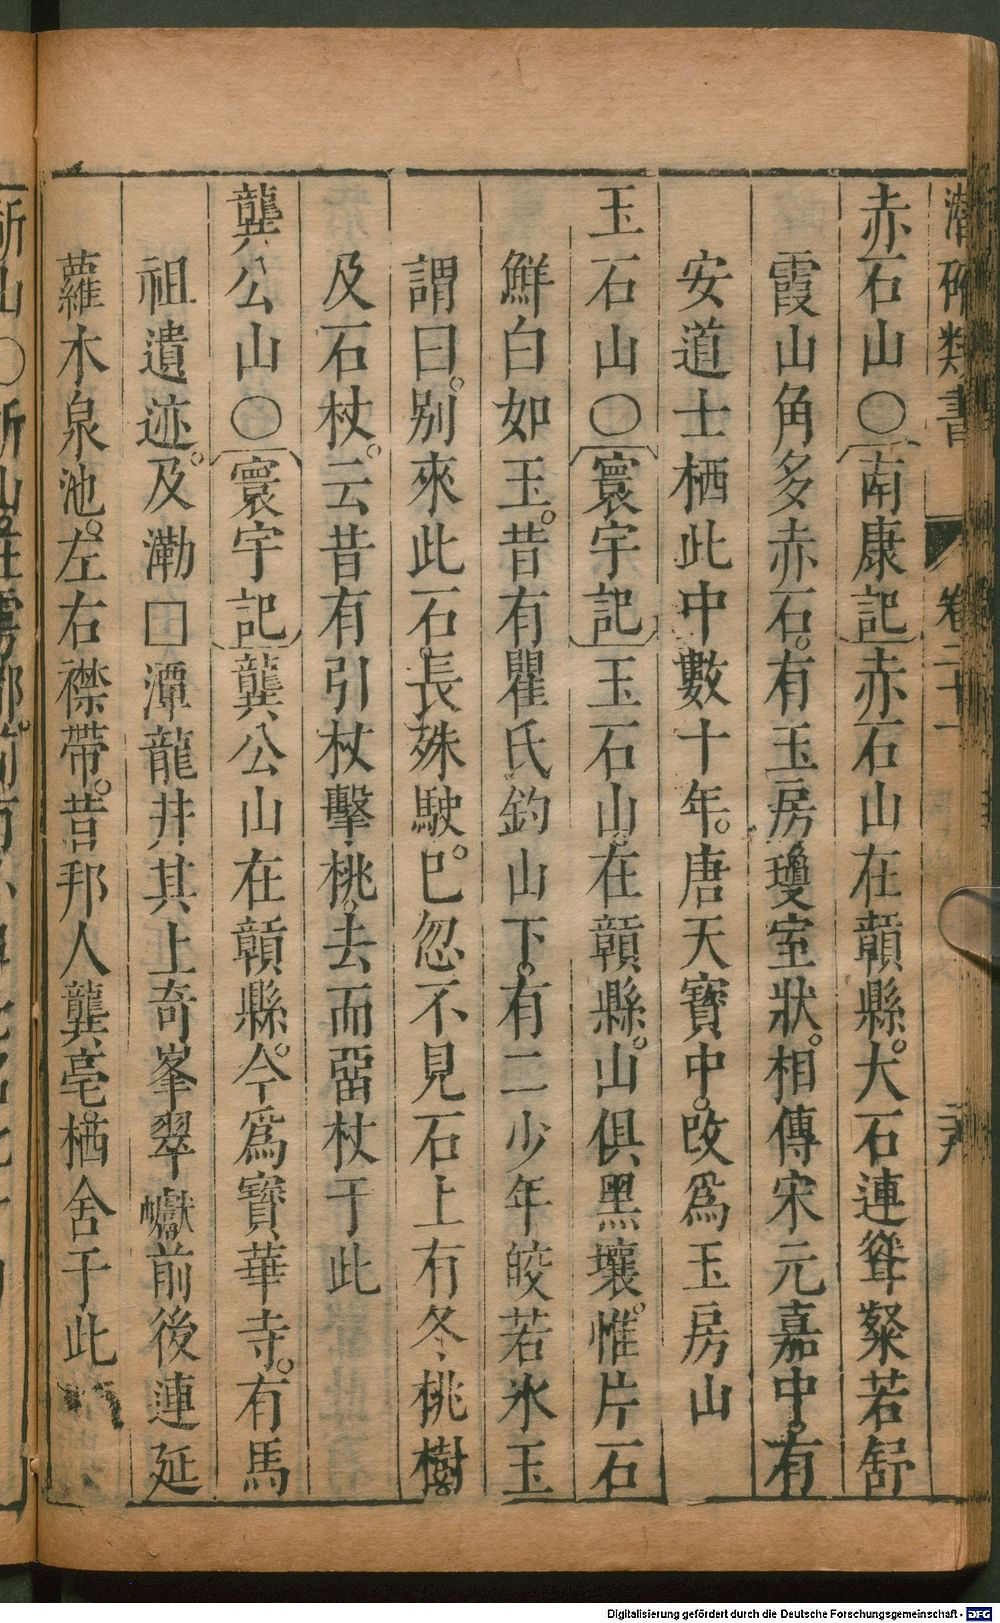 潛確類書 卷二十一
赤石山○南康記赤石山在贛縣大石連聳粲若舒
霞山角多赤石有玉房瓊室狀相傳宋元嘉中有
安道士栖此中數十年唐天寶中改爲玉房山
玉石山○寰宇記玉石山在贛縣山俱黑壤惟片石
鮮白如玉昔有瞿氏釣山下有二少年皎若氷玉
謂曰別來此石長殊駛巳忽不見石上有冬桃樹
及石杖云昔有引杖擊桃去而畱杖于此
龔公山○寰宇記龔公山在贛縣今爲寶華寺有馬
祖遺迹及泐□潭龍井其上奇峯翠巘前後連延
蘿木泉池左右襟帶昔邦人龔亳栖舍于此
Digitalisierung gefördert durch die Deutsche Forschungsgemeinschaft - DFG